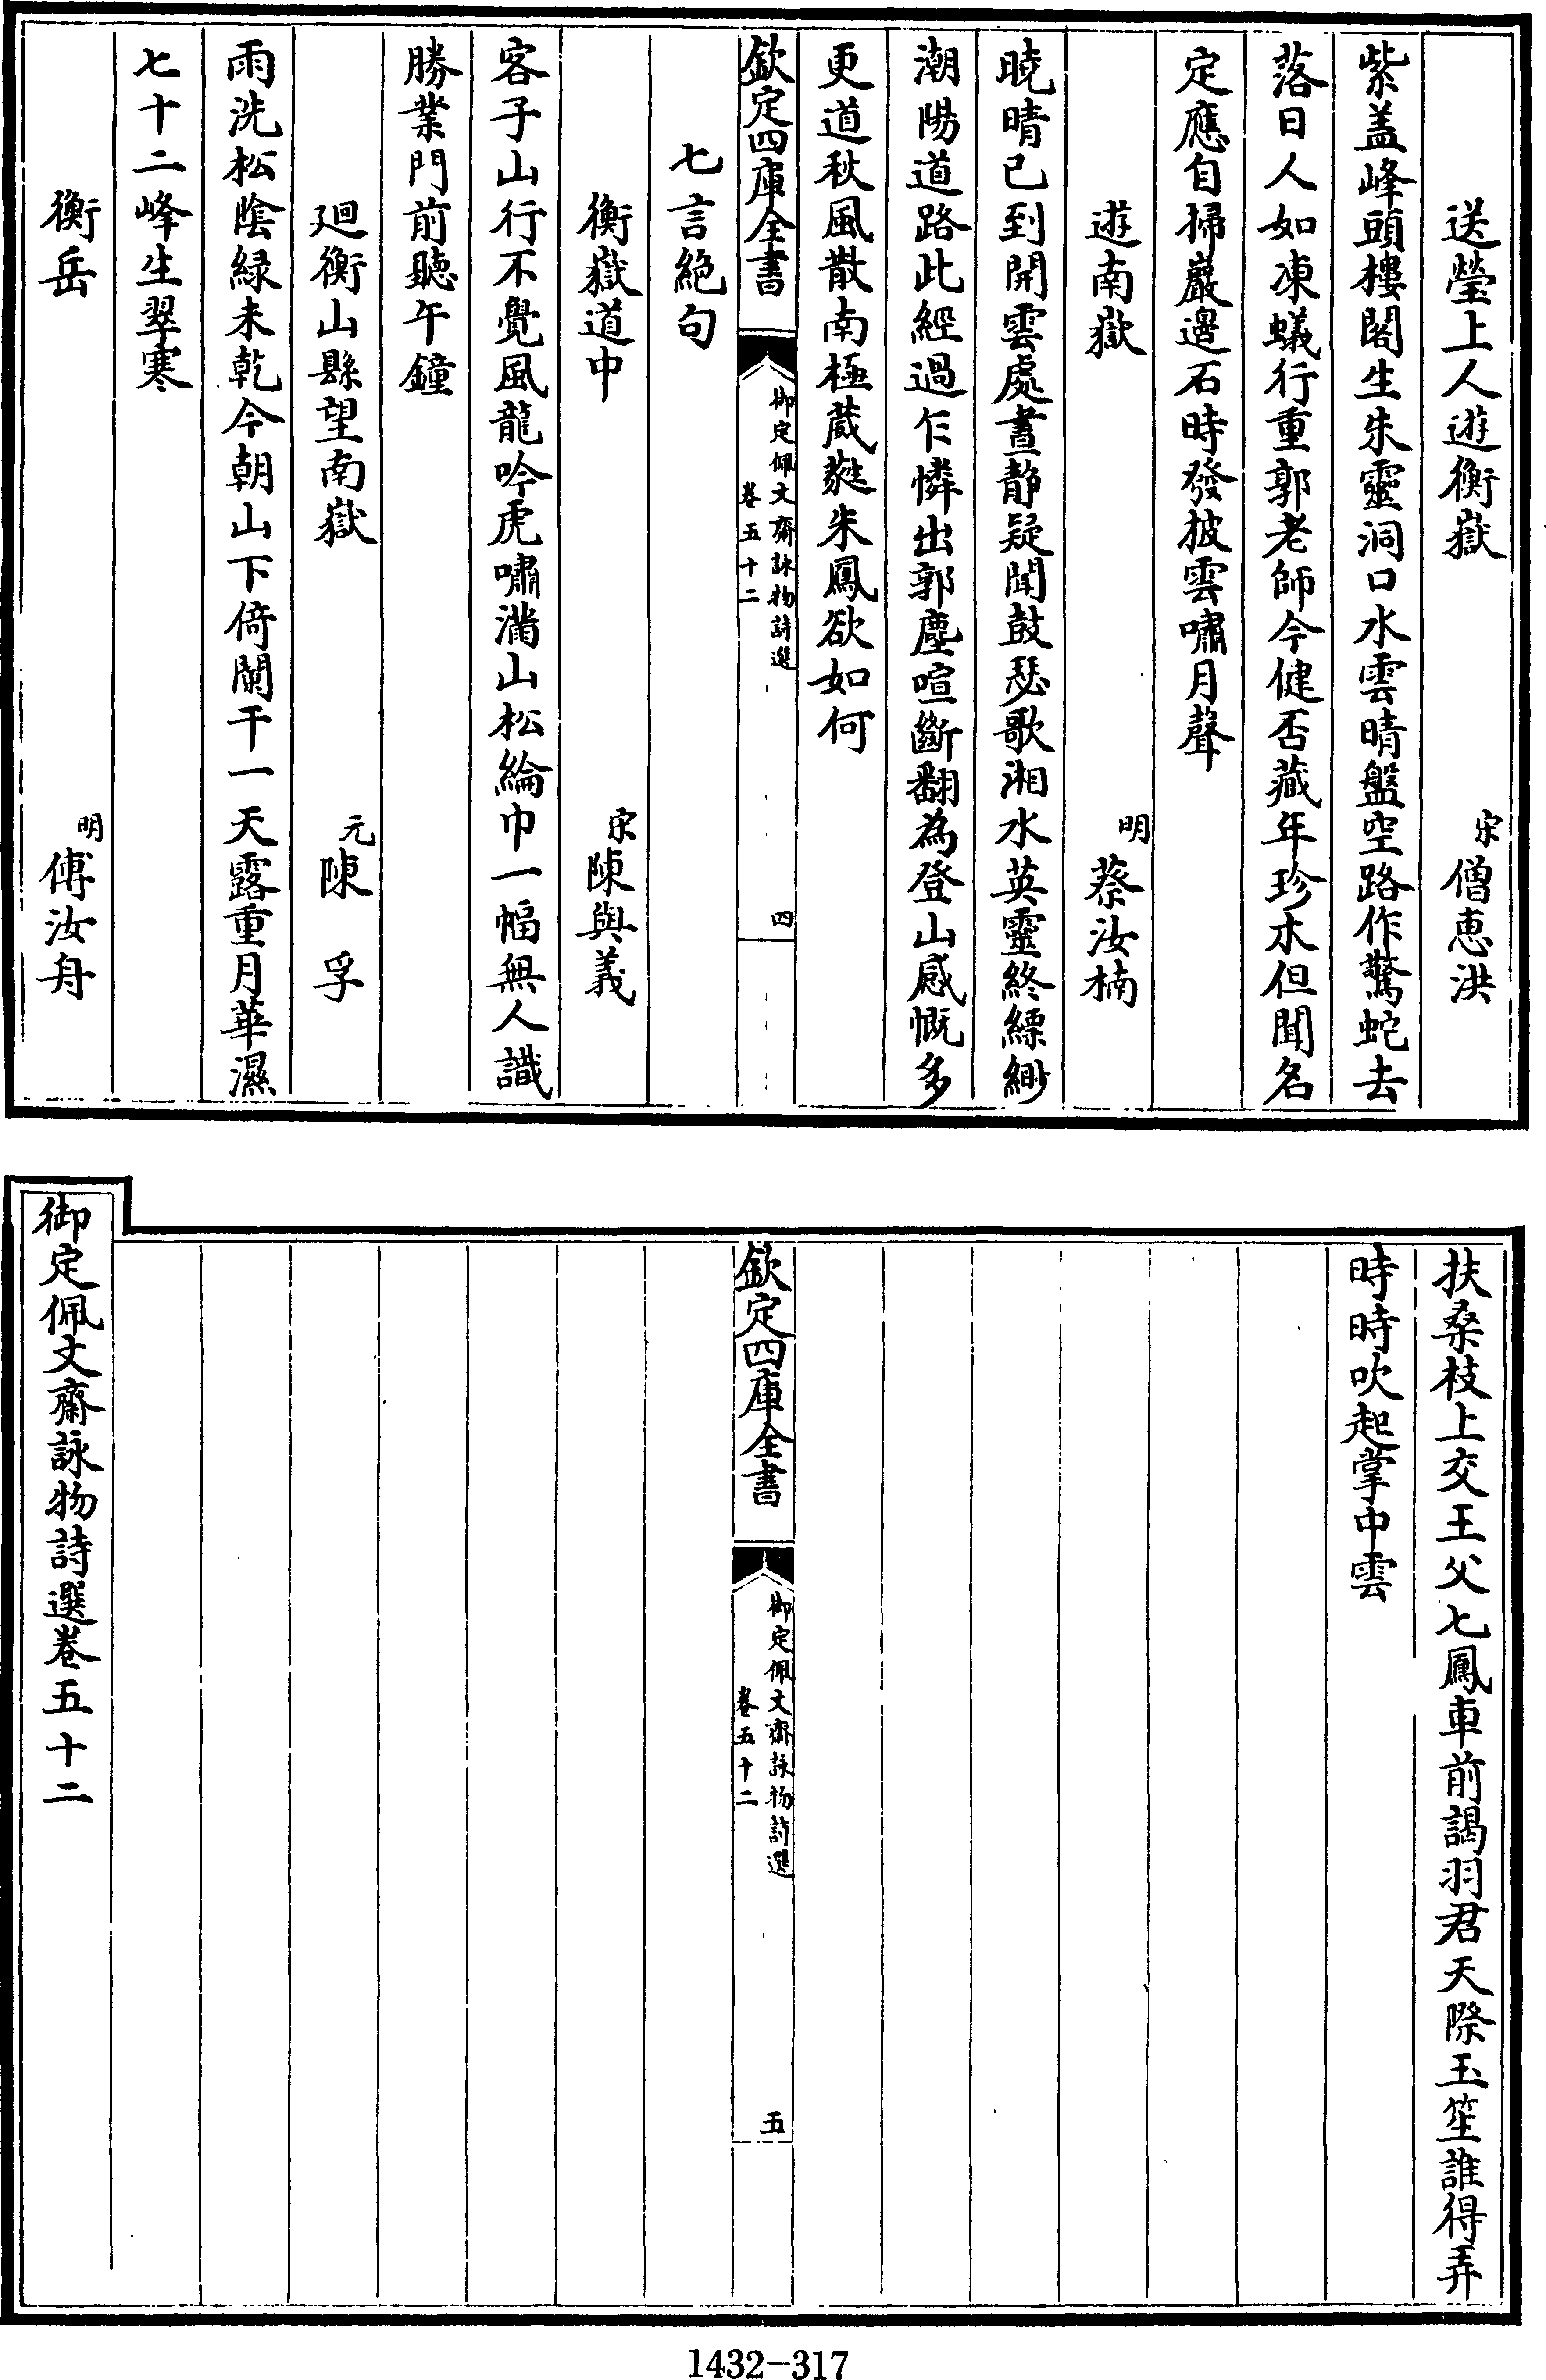 送瑩上人遊衡嶽 宋僧惠洪
紫盖峰頭樓閣生朱靈洞口水雲晴盤空路作驚蛇去
落日人如凍蟻行重郭老師今健否藏年珍木但聞名
定應自掃巖邉石時發披雲嘯月聲
遊南嶽 明蔡汝楠
曉晴已到開雲處晝靜疑聞鼓瑟歌湘水英靈終縹緲
潮陽道路此經過乍憐出郭塵喧斷翻為登山感慨多
更道秋風散南極葳蕤朱鳳欲如何
欽定四庫全書
御定佩文齋詠物詩選
卷五十二
四
七言絕句
衡嶽道中 宋陳與義
客子山行不覺風龍吟虎嘯滿山松綸巾一幅無人識
勝業門前聽午鐘
廻衡山縣望南嶽 元陳孚
雨洗松陰緑未乾今朝山下倚闌干一天露重月華濕
七十二峰生翠寒
衡岳 明傅汝舟
扶桑枝上交王父七鳳車前謁羽君天際玉笙誰得弄
時時吹起掌中雲
欽定四庫全書
御定佩文齋詠物詩選
卷五十二
五
御定佩文齋詠物詩選卷五十二
1432-317